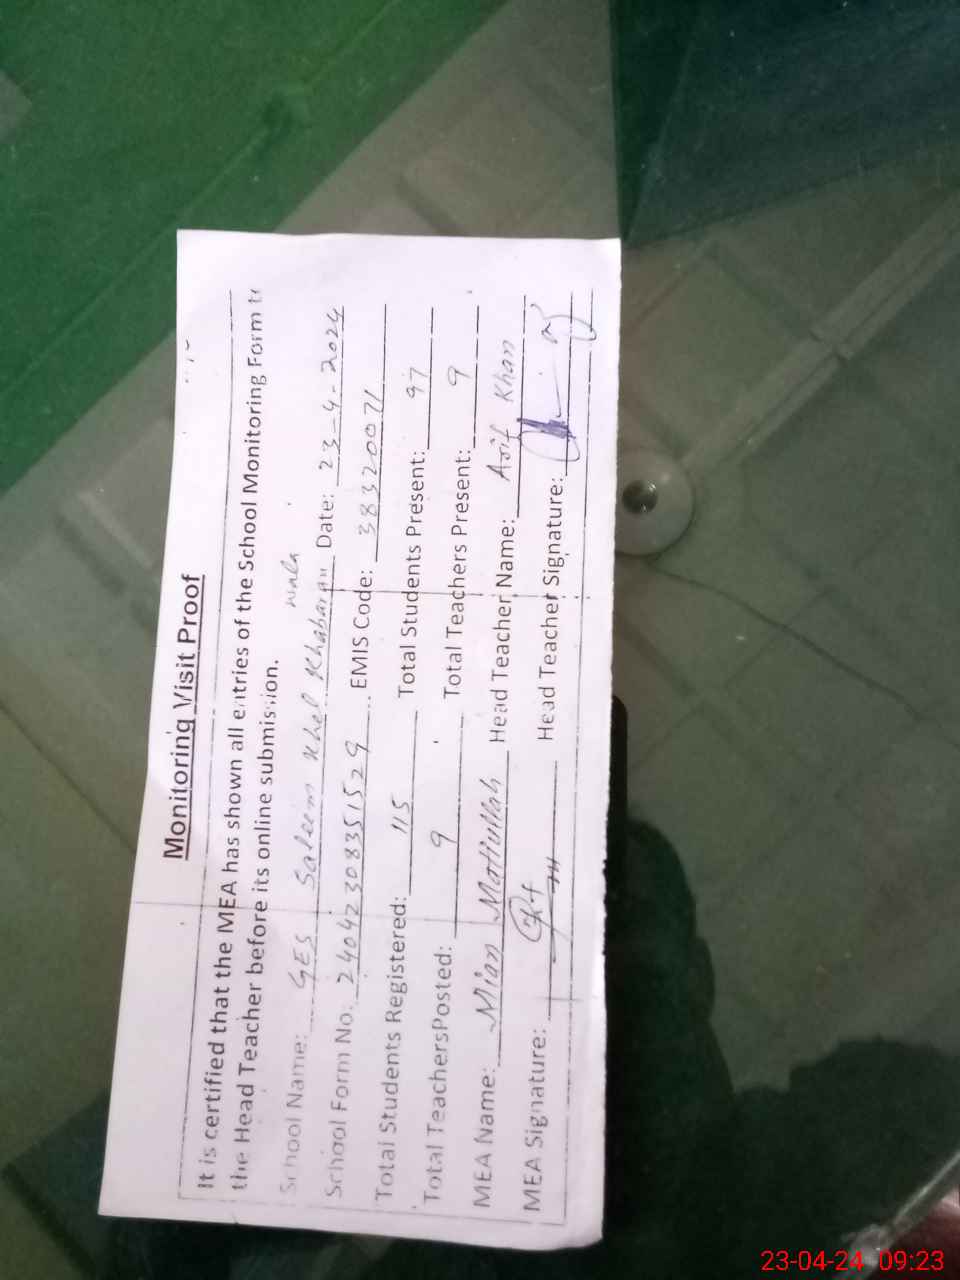 Monitoring Visit Proof
It is certified that the MEA has shown all entries of the School Monitoring Form to
the Head Teacher before its online submission.
School Name: GES Saleem Khel Khabaran wala Date: 23-4-2024
School Form No. 24042308351529 EMIS Code: 38320071
Total Students Registered: 115 Total Students Present: 97
Total TeachersPosted: 9 Total Teachers Present: 9
MEA Name: Mian Matiullah Head Teacher Name: Asif Khan
MEA Signature: Head Teacher Signature:
23-04-24 09:23